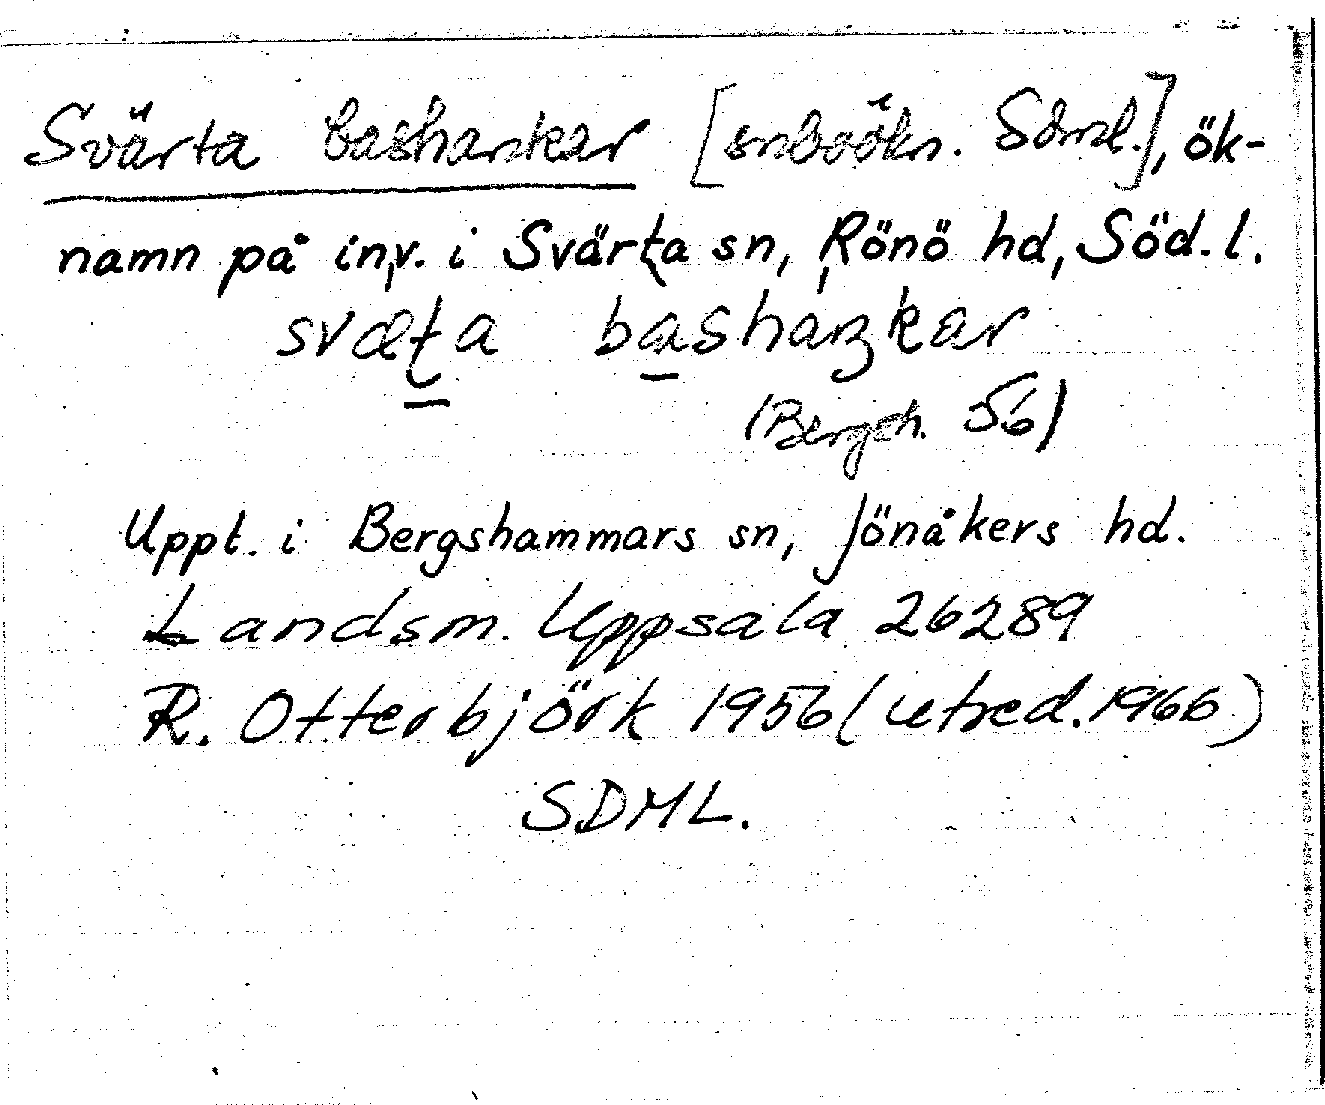 Svärta bashankar [snboökn. Sdml.], ök-
namn på inv. i Svärta sn, Rönö hd, Söd.l.
svæʈa bashaŋkar
(Bergsh. 56)
Uppt. i Bergshammars sn, Jönåkers hd.
Landsm. Uppsala 26289
R. Otterbjörk 1956 (utred. 1966)
SDML.